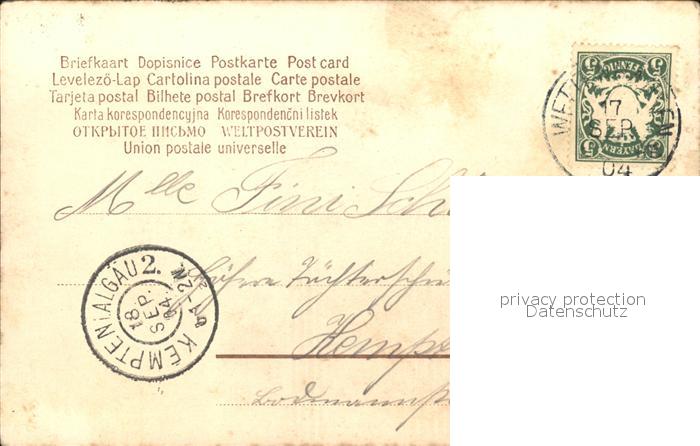 Briefkaart Dopisnice Postkarte Post card
Levelező-Lap Cartolina postale Carte postale
Tarjeta postal Bilhete postal Brefkort Brevkort
Karta korespondencyjna Korespondenční listek
ОТКРЫТОЕ ПИСЬМО WELTPOSTVEREIN
Union postale universelle
5 PFENNIG 5
5 BAYERN 5
17
SEP.
04
Mlle Fini Sch
Höhere Töchterschu
Kempt
Bodmannst
KEMPTEN (ALGÄU) 2.
18
SEP.
04
privacy protection
Datenschutz